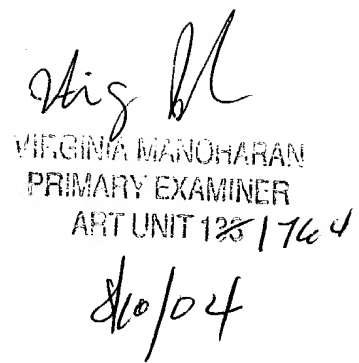 VIRGINIA MANOHARAN
PRIMARY EXAMINER
ART UNIT 1764
8/10/04